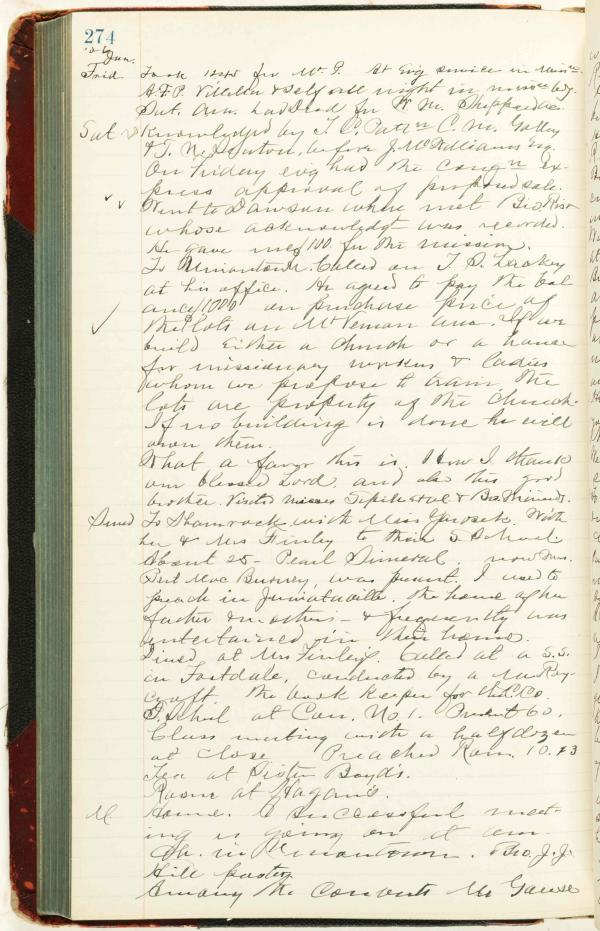 274
'06 Jan.
Frid. Took 1245 for Mt. P. At Evg service in
A.F.P. & self all night in
Sat. Am. had Deed for W. M. Shipped ac-
Sat knowledged by T. C. C. M. Galley
& T. N. before J. McWilliams Esq.
On Friday evg had the congn ex-
press approval of proposed sale.
Went to Dawson where met Bro.
whose acknowledgt was recorded.
He gave me $100. for the mission.
To Uniontown. Called on I. S. Lackey
at his office. He agreed to pay the bal
ance $1000 on purchase price of
the lots on Mt Vernon Ave. If we
build either a church or a house
for missionary workers & ladies
whom we propose to train the
lots are property of the Church.
If no building is done he will
own them.
What a favor this is. How I thank
our blessed Lord and also this good
brother. Visited Misses &
Sund To Shamrock with Miss With
her & Mrs Finley to their S School.
About 25 – Pearl now Mrs.
Bert Mac was present. I used to
preach in the home of her
father & mother – & frequently was
entertained in their home.
Dined at Mrs Finley's. Called at a S.S.
in Footdale, conducted by a Mr Ray-
croft the book keeper for the C. Co.
S. School at Con. No. 1. Present 60.
Class meeting with a half dozen
at close. Preached Rom. 10.13
Tea at Sister Boyd's.
Room at Hagan's.
M Home. A successful meet-
ing is going on at our
Ch. in Uniontown. Bro. J. J.
Hill pastor.
Among the converts Mr Gause